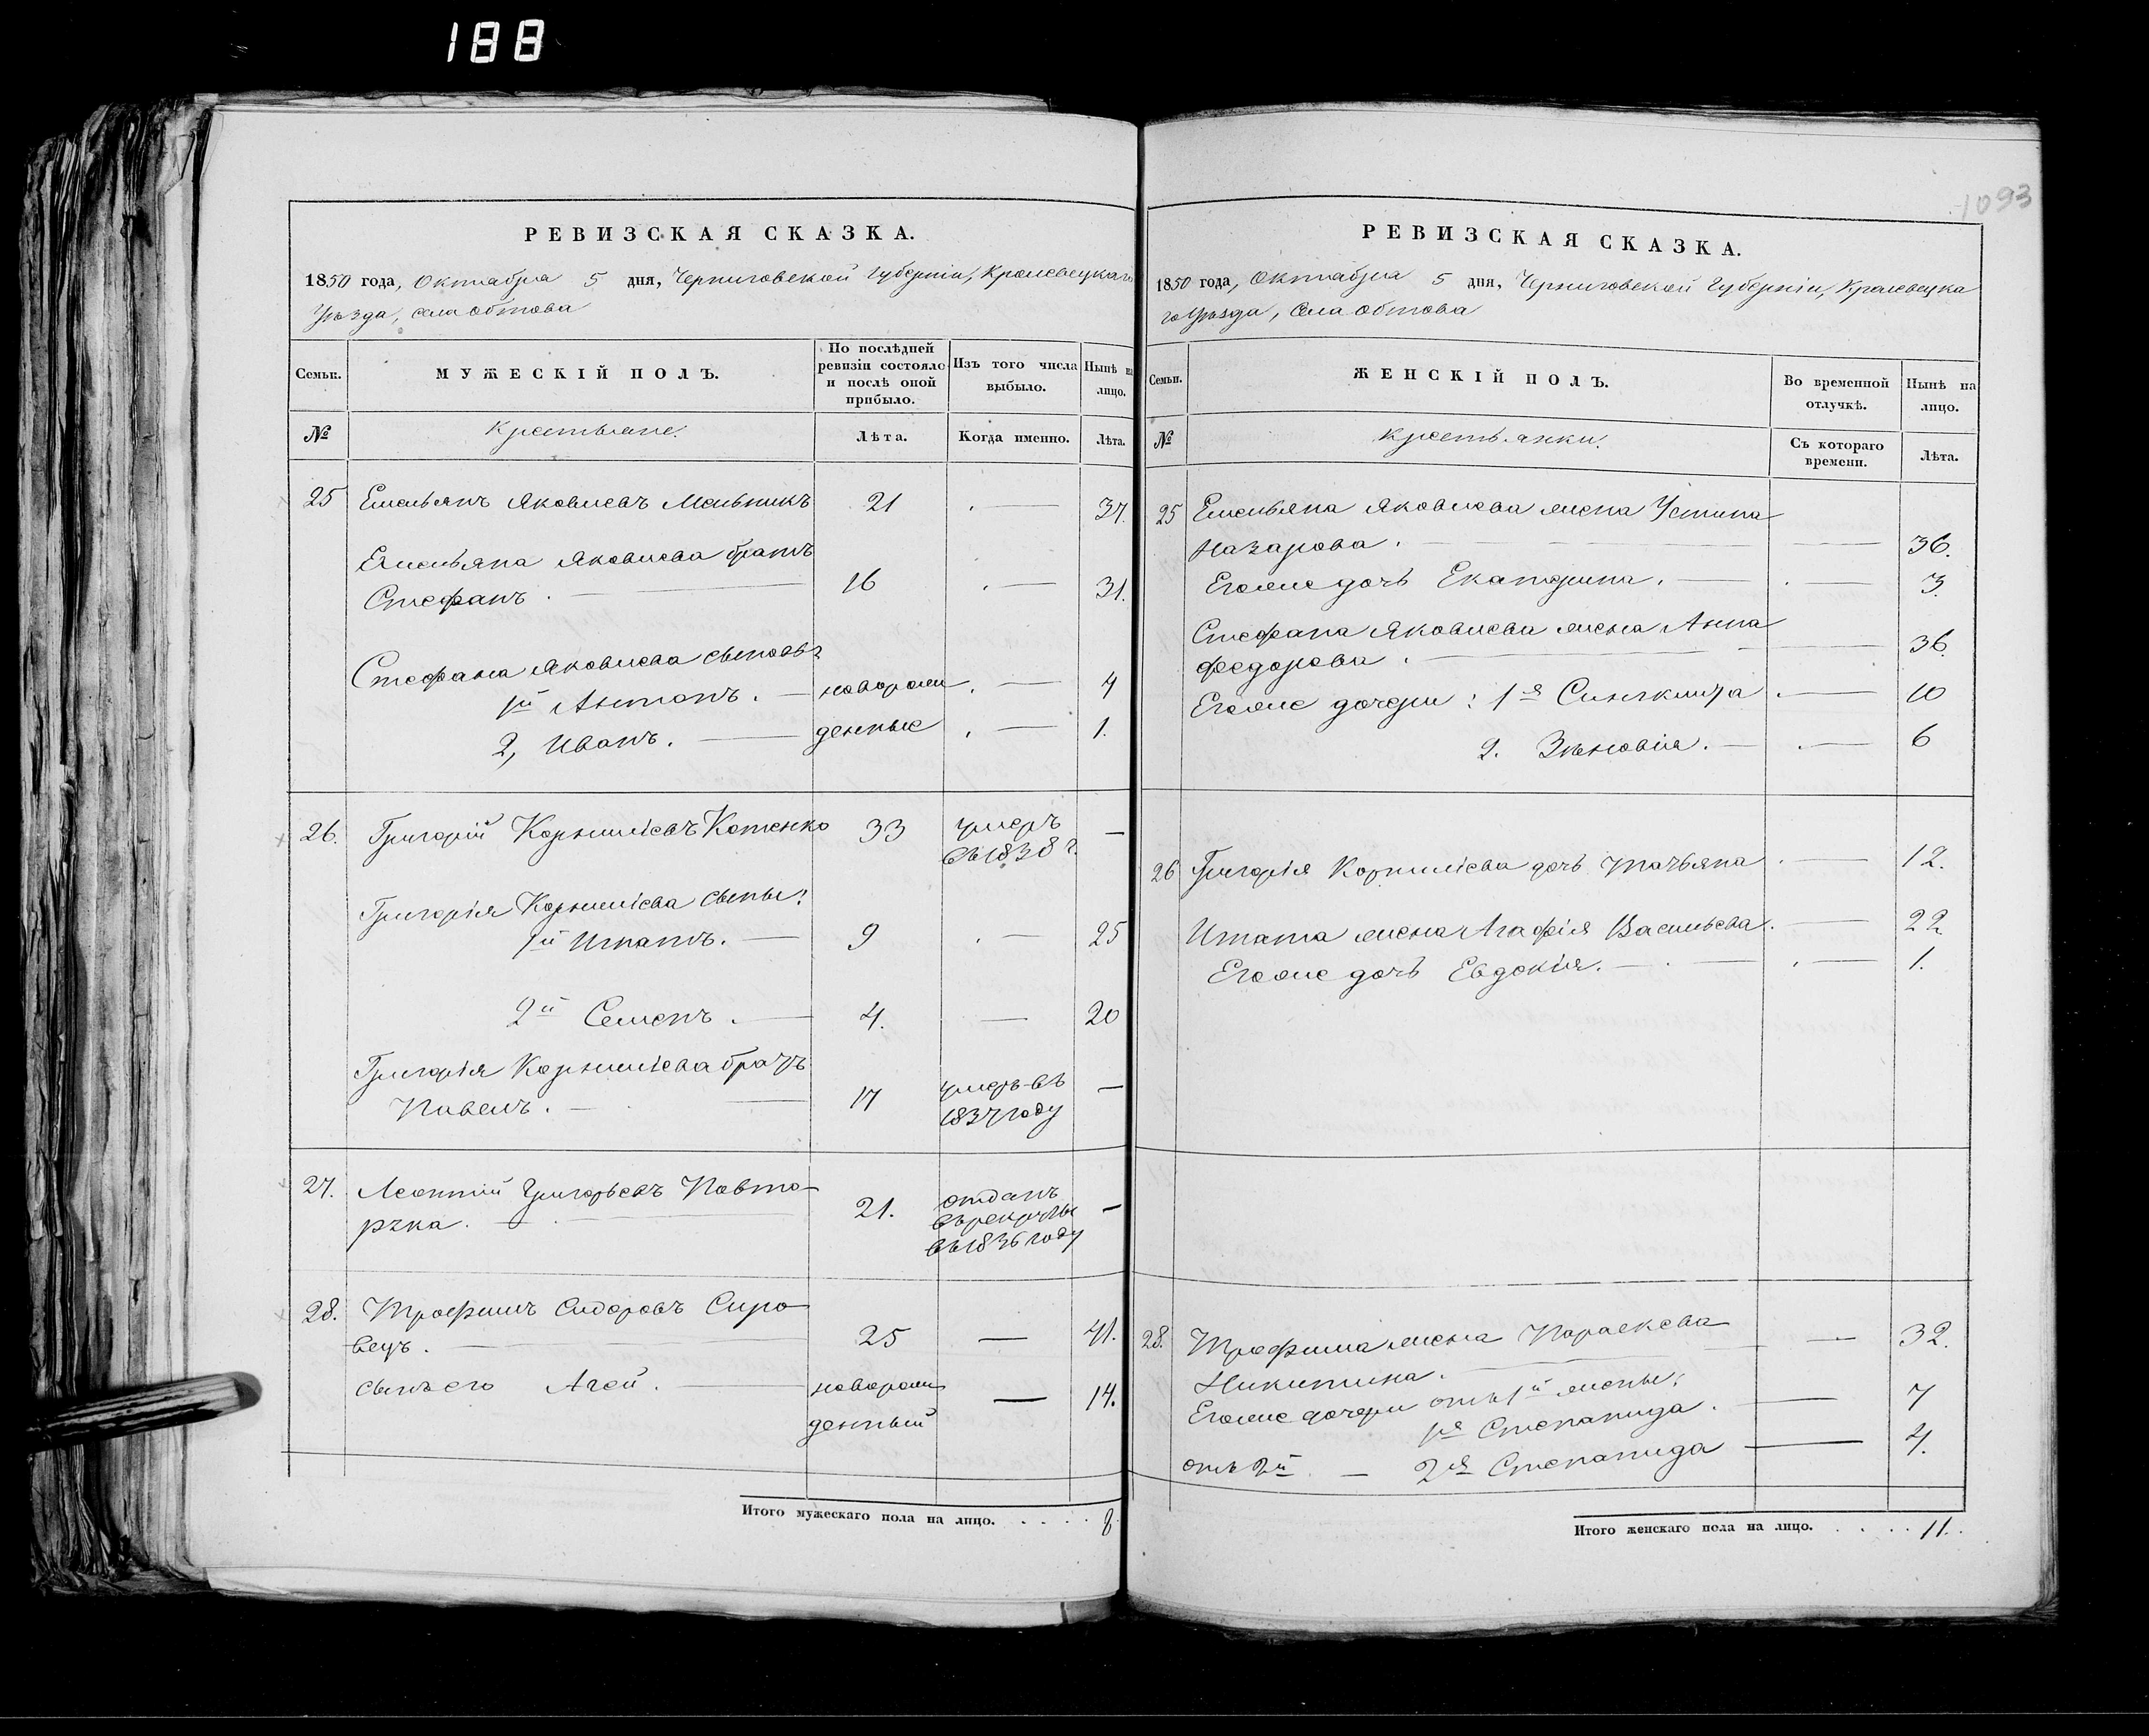 188
РЕВИЗСКАЯ СКАЗКА.
1850 года, Октября 5 дня, Черниговской Губерніи, Кролевецкаго
Уѣзда, села Обтова
Семьи. МУЖЕСКІЙ ПОЛЪ. По послѣдней ревизіи состояло и послѣ оной прибыло. Изъ того числа выбыло. Нынѣ на лицо.
№ Крестьяне. Лѣта. Когда именно. Лѣта.
25 Емельянъ Яковлевъ Мельникъ 21 . — 37.
Емельяна Яковлева братъ
Стефанъ . — 16 . — 31.
Стефана Яковлева сыновья
1й Антонъ . — новорож . — 4
2, Иванъ . — денные . — 1.
26. Григорій Корниліевъ Котенко 33 умеръ —
въ 1838 г.
Григорія Корниліева сыны:
1й Игнатъ. — 9 . — 25
2й Семенъ . — 4. — 20
Григорія Корниліева братъ
Павелъ . — 17 умеръ въ —
1837 году
27. Леонтій Григорьевъ Повто-
рка . — 21. отданъ —
въ рекруты
въ 1836 году
28. Трофимъ Сидоровъ Сиро
вецъ . — 25 — 41.
сынъ его Агей . — новорож — 14.
денный
Итого мужескаго пола на лицо. . . . . 8.
1093
РЕВИЗСКАЯ СКАЗКА.
1850 года, Октября 5 дня, Черниговской Губерніи, Кролевецка
го Уѣзда, Села Обтова
Семьи. ЖЕНСКІЙ ПОЛЪ. Во временной отлучкѣ. Нынѣ на лицо.
№ Крестьянки. Съ котораго времени. Лѣта.
25 Емельяна Яковлева жена Устина
Назарова . — — 36.
Егоже дочь Екатерина . — . — 3.
Стефана Яковлева жена Анна
Федорова . — — 36.
Егоже дочери : 1я Синклита . — 10
2. Зѣновія . — . — 6
26 Григорія Корниліева дочь Татьяна . — 12.
Игната жена Агафія Васильева . — 22
Егоже дочь Евдокія . — . — 1.
28. Трофима жена Параскева — 32.
Никитина .
Егоже дочери отъ 1й жены:
1я Степанида . — 7
отъ 2й . — 2я Степанида — 4.
Итого женскаго пола на лицо. . . . . 11.